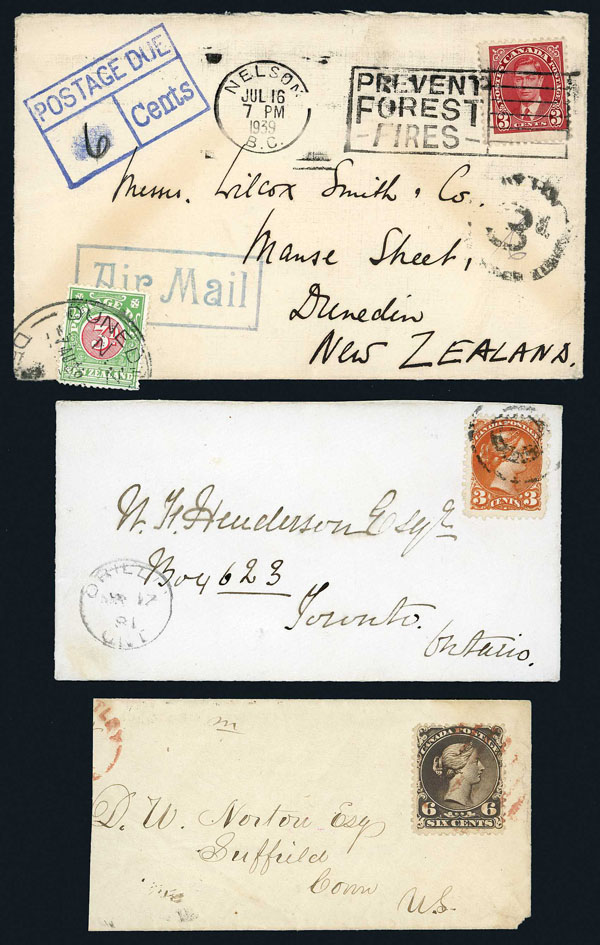 POSTAGE DUE
6 Cents
NELSON
JUL 16
7 PM
1939
B.C.
PREVENT
FOREST
FIRES
POSTES CANADA POSTAGE
3 3
Messrs. Wilcox Smith & Co.,
Manse Street,
Dunedin
NEW ZEALAND.
3d.
Air Mail
DUNEDIN
3d
N. ZEALAND
CANADA POSTAGE
3 CENTS 3
W. H. Henderson Esqr
Box 623
Toronto
Ontario.
ORILLIA
17
81
ONT
CANADA POSTAGE
6 6
SIX CENTS
D. W. Norton Esq
Suffield
Conn
U.S.